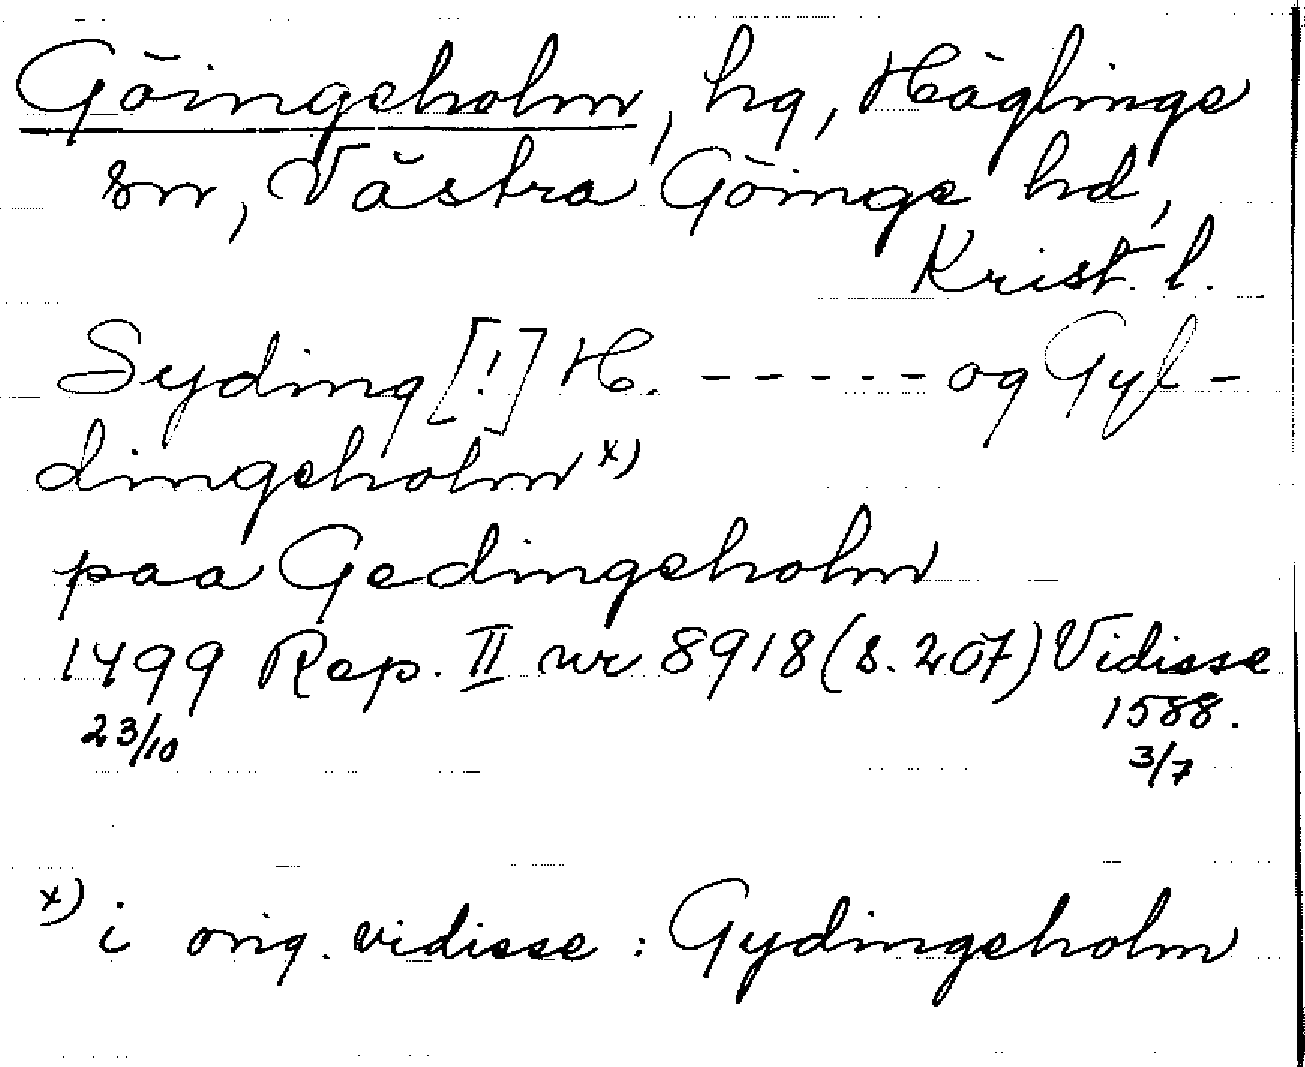 Göingeholm, hg, Häglinge
sn, Västra Göinge hd,
Krist. l.
Syding [!] H. - - - - - og Gyl-
dingeholm x)
paa Gedingeholm
1499 Rep. II nr 8918 (s. 207) Vidisse
23/10 1588.
3/7
x) i orig. vidisse : Gydingeholm